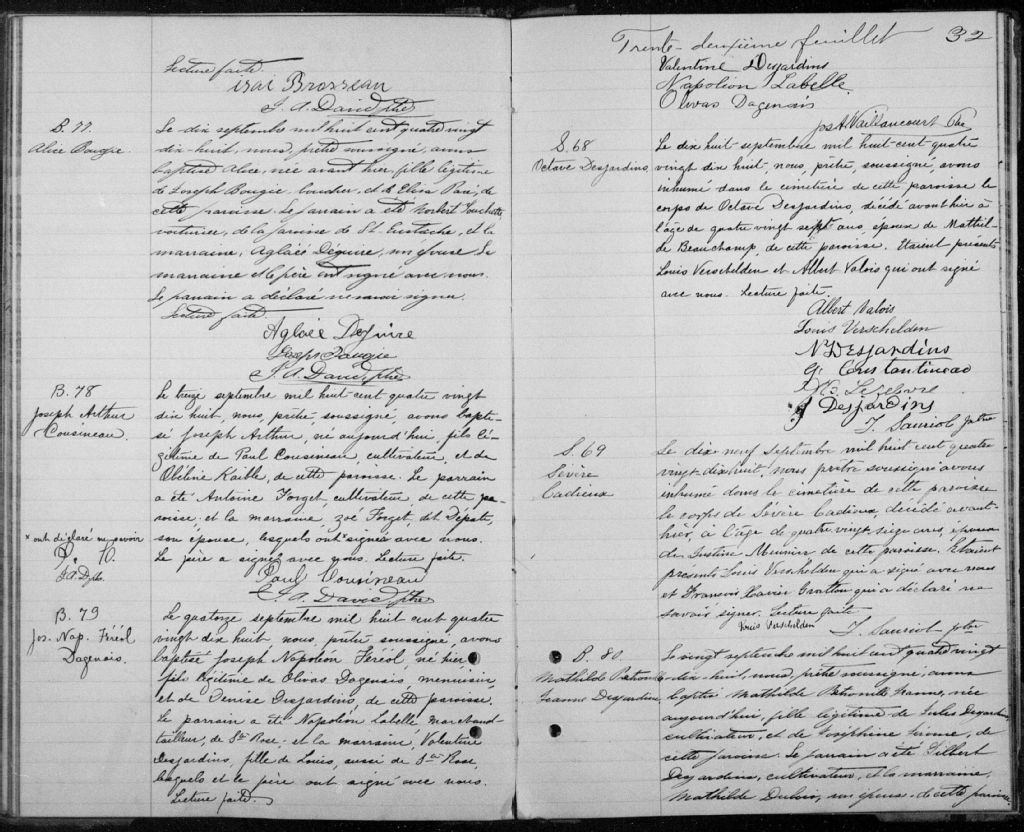 Lecture faite.
isai Brosseau
J. A. David, ptre
B. 77.
Alice Bougie.
Le dix septembre mil huit cent quatre vingt
dix-huit, nous, prêtre soussigné, avons
baptisé Alice, née avant hier, fille légitime
de Joseph Bougie, boucher, et d'Eliva Paré, de
cette paroisse. Le parrain a été Norbert Touchette
voiturier, de la paroisse de St. Eustache, et la
marraine, Aglaée Déguire, son épouse. La
marraine et le père ont signé avec nous.
Le parrain a déclaré ne savoir signer.
Lecture faite.
Aglaée Deguire
Joseph Bougie
J. A. David, ptre
B. 78
Joseph Arthur
Cousineau.
Le treize septembre mil huit cent quatre vingt
dix huit, nous, prêtre soussigné, avons bapti-
sé Joseph Arthur, né aujourd'hui, fils lé-
gitime de Paul Cousineau, cultivateur, et de
de cette paroisse. Le parrain
a été Antoine Forget, cultivateur de cette pa-
roisse; et la marraine, Zoé Forget, dit Dépatie,
son épouse, lesquels ont × signé avec nous.
Le père a signé avec nous. Lecture faite.
× ont déclaré ne savoir
J.A.D. ptre
Paul Cousineau
J. A. David, ptre
B. 79
Jos. Nap. Féréol
Dagenais.
Le quatorze septembre mil huit cent quatre
vingt dix huit, nous, prêtre soussigné, avons
baptisé Joseph Napoléon Féréol, né hier,
fils légitime de Olivas Dagenais, menuisier,
et de Denise Desjardins, de cette paroisse.
Le parrain a été Napoléon Labelle, marchand-
tailleur, de Ste Rose; et la marraine, Valentine
Desjardins, fille de Louis, aussi de Ste Rose,
lesquels et le père ont signé avec nous.
Lecture faite.
Trente-deuxième feuillet 32
Valentine Desjardins
Napoléon Labelle
Olivas Dagenais
Jos A. Vaillancourt Ptre
S. 68
Octave Desjardins
Le dix huit septembre mil huit cent quatre
vingt dix huit, nous, prêtre, soussigné, avons
inhumé dans le cimetière de cette paroisse le
corps de Octave Desjardins, décédé avant hier à
l'âge de quatre vingt sept ans, époux de Mathil-
de Beauchamp, de cette paroisse. Etaient présents
Louis Verschelden et Albert Valois qui ont signé
avec nous. Lecture faite.
Albert Valois
Louis Verschelden
N Desjardins
G. Constantineau
Lefebvre
J Desjardins
J. Sauriol ptre
S. 69
Sévère
Cadieux
Le dix neuf Septembre mil huit cent quatre
vingt dix huit, nous prêtre soussigné avons
inhumé dans le cimetière de cette paroisse
le corps de Sévère Cadieux, décédé avant-
hier, à l'âge de quatre vingt seize ans, époux
de Justine Meunier de cette paroisse. Etaient
présents Louis Verschelden qui a signé avec nous
et Francois Xavier Gratton qui a déclaré ne
savoir signer. Lecture faite
Louis Verschelden
J. Sauriol ptre
B. 80.
Mathilde Petronille
Jeanne Desjardins
Le vingt septembre mil huit cent quatre vingt
dix-huit, nous, prêtre soussigné, avons
baptisé Mathilde Petronille Jeanne, née
aujourd'hui, fille légitime de Jules Desjardins
cultivateur, et de Joséphine Sirome, de
cette paroisse. Le parrain a été Gilbert
Desjardins, cultivateur, et la marraine,
Mathilde Dubois, son épouse, de cette paroisse